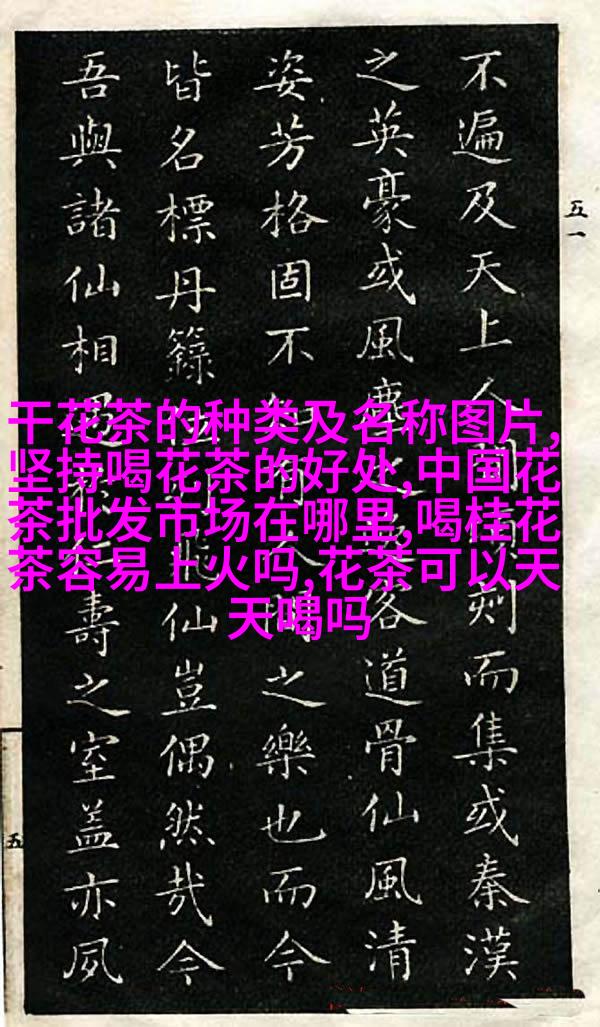 五一
不遍及天上人間頃刻而集或秦漢
之英豪或風塵之客道骨仙風清
姿芳格固不知有人間之樂也而今
皆名標丹籙位列飛仙豈偶然哉今
吾與諸仙相遇壽之室蓋亦夙
五
干花茶的种类及名称图片,
坚持喝花茶的好处,中国花
茶批发市场在哪里,喝桂花
茶容易上火吗,花茶可以天
天喝吗